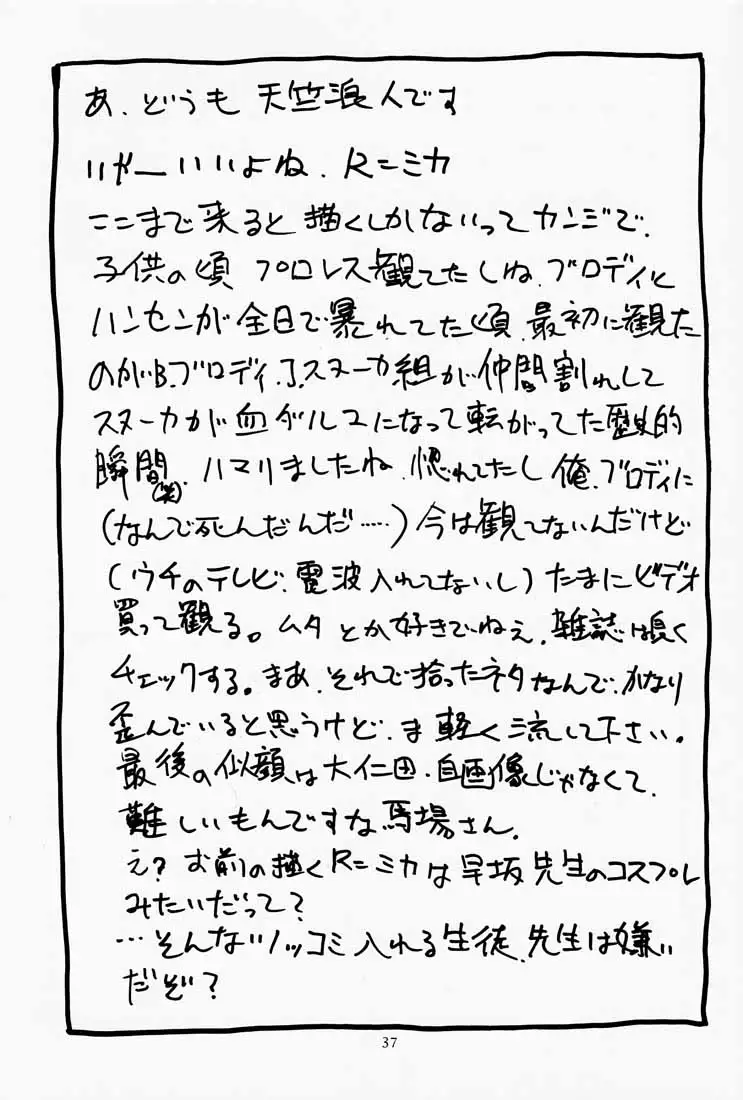 あ、どうも 天竺浪人です
いやーいいよね、R=ミカ
ここまで来ると 描くしかないってカンジで、
子供の頃 プロレス観てたしね、ブロディと
ハンセンが全日で暴れてた頃、最初に観た
のがB.ブロディ、J.スヌーカ組が仲間割れして
スヌーカが血ダルマになって転がってた歴史的
瞬間(笑)、ハマリましたね、惚れてたし俺、ブロディに
(なんで死んだんだ……)今は観てないんだけど
(ウチのテレビ、電波入れてないし)たまにビデオ
買って観る。ムタとか好きでねえ、雑誌は良く
チェックする。まあ、それで拾ったネタなんで、かなり
歪んでいると思うけど、ま軽く流して下さい。
最後の似顔は大仁田、自画像じゃなくて、
難しいもんですな馬場さん、
え?お前の描くR=ミカは早坂先生のコスプレ
みたいだって?
…そんなツッコミ入れる生徒、先生は嫌い
だぞ?
37